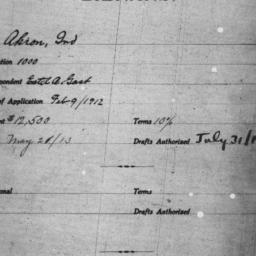 Akron, Ind
tion 1000
pondent Estel A. Gast
of Application Feb 9/1912
nt $12,500 Terms 10%
May 28/13 Drafts Authorized July 31/1
nal Terms
Drafts Authorized